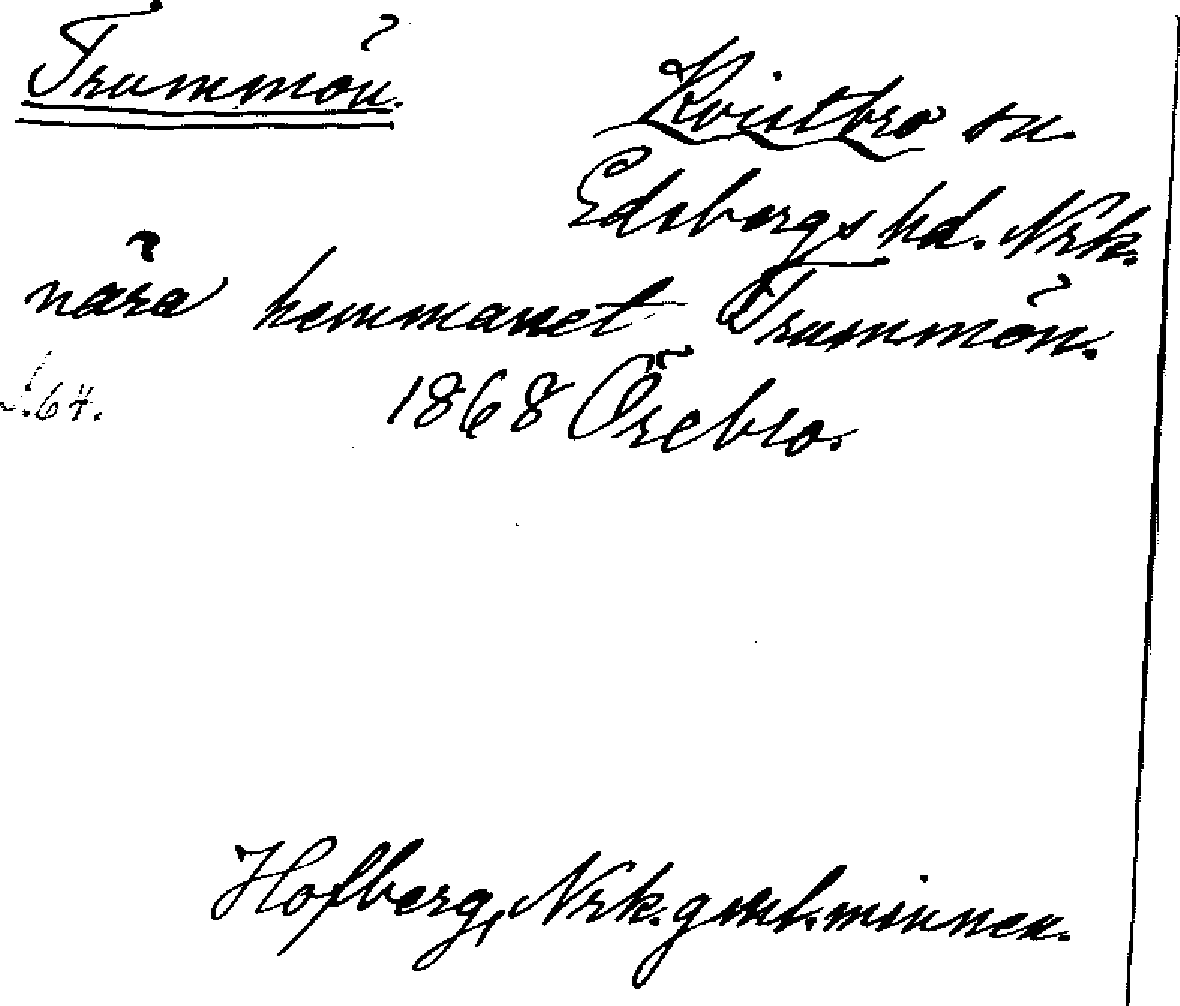 Trummön.
Kvistbro sn.
Edsbergs hd. Nrk.
nära hemmanet Trummön.
s.64. 1868 Örebro.
Hofberg, Nrk. gml. minnen.